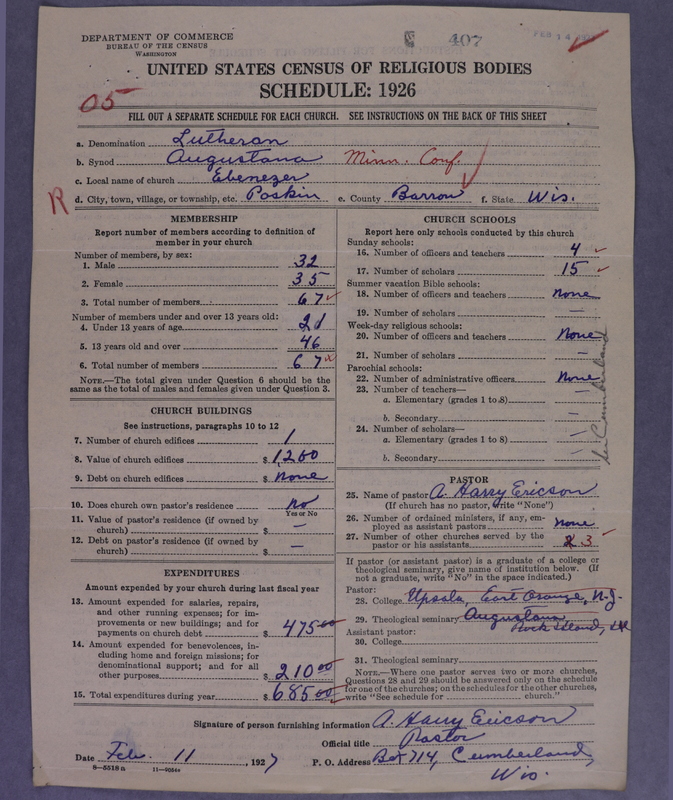 DEPARTMENT OF COMMERCE
BUREAU OF THE CENSUS
WASHINGTON
407
FEB 14
UNITED STATES CENSUS OF RELIGIOUS BODIES
SCHEDULE: 1926
05
FILL OUT A SEPARATE SCHEDULE FOR EACH CHURCH. SEE INSTRUCTIONS ON THE BACK OF THIS SHEET
a. Denomination Lutheran
b. Synod Augustana Minn. Conf.
c. Local name of church Ebenezer
R
d. City, town, village, or township, etc. Poskin e. County Barron f. State Wis.
MEMBERSHIP
Report number of members according to definition of
member in your church
Number of members, by sex:
1. Male 32
2. Female 35
3. Total number of members 67
Number of members under and over 13 years old:
4. Under 13 years of age 21
5. 13 years old and over 46
6. Total number of members 67
NOTE.—The total given under Question 6 should be the
same as the total of males and females given under Question 3.
CHURCH BUILDINGS
See instructions, paragraphs 10 to 12
7. Number of church edifices 1
8. Value of church edifices $ 1,200
9. Debt on church edifices $ None
10. Does church own pastor's residence? No
Yes or No
11. Value of pastor's residence (if owned by
church) $ —
12. Debt on pastor's residence (if owned by
church) $ —
EXPENDITURES
Amount expended by your church during last fiscal year
13. Amount expended for salaries, repairs,
and other running expenses; for im-
provements or new buildings; and for
payments on church debt $ 475 00
14. Amount expended for benevolences, in-
cluding home and foreign missions; for
denominational support; and for all
other purposes $ 210 00
15. Total expenditures during year $ 685 00
CHURCH SCHOOLS
Report here only schools conducted by this church
Sunday schools:
16. Number of officers and teachers 4
17. Number of scholars 15
Summer vacation Bible schools:
18. Number of officers and teachers None
19. Number of scholars —
Week-day religious schools:
20. Number of officers and teachers None
21. Number of scholars —
Parochial schools:
22. Number of administrative officers None
23. Number of teachers—
a. Elementary (grades 1 to 8) —
b. Secondary —
24. Number of scholars—
a. Elementary (grades 1 to 8) —
b. Secondary —
Cumberland
PASTOR
25. Name of pastor A. Harry Ericson
(If church has no pastor, write "None")
26. Number of ordained ministers, if any, em-
ployed as assistant pastors None
27. Number of other churches served by the
pastor or his assistants 3
If pastor (or assistant pastor) is a graduate of a college or
theological seminary, give name of institution below. (If
not a graduate, write "No" in the space indicated.)
Pastor:
28. College Upsala, East Orange, N.J.
29. Theological seminary Augustana
Rock Island, Ill
Assistant pastor:
30. College
31. Theological seminary
NOTE.—Where one pastor serves two or more churches,
Questions 28 and 29 should be answered only on the schedule
for one of the churches; on the schedules for the other churches,
write "See schedule for church."
Signature of person furnishing information A. Harry Ericson
Official title Pastor
Date Feb. 11, 1927 P. O. Address Box 714, Cumberland,
Wis.
8—5518 a